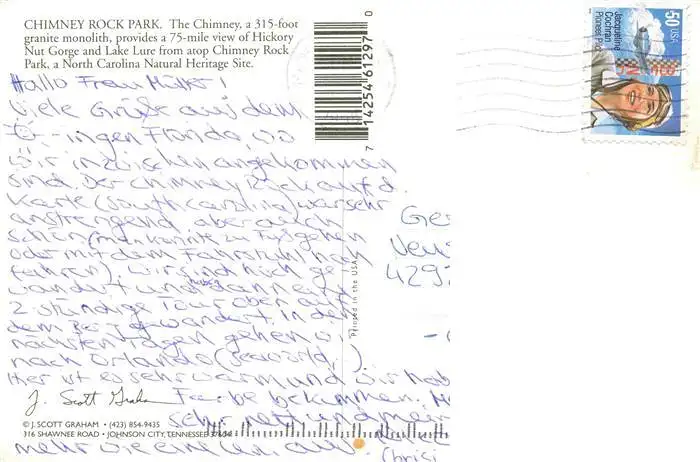 CHIMNEY ROCK PARK. The Chimney, a 315-foot
granite monolith, provides a 75-mile view of Hickory
Nut Gorge and Lake Lure from atop Chimney Rock
Park, a North Carolina Natural Heritage Site.
0
14254 61297
7
50 USA
Jacqueline
Cochran
Pioneer Pilot
Hallo Frau
Viele Grüße aus dem
Florida, wo
wir inzwischen angekommen
sind. Der Chimney Rock auf d.
Karte (South Carolina) war sehr
anstrengend aber auch
schön (man konnte zu Fuß gehen
oder mit dem Fahrstuhl hoch
fahren). Wir sind hoch ge
wandert und haben dann eine
2 stündige Tour oben auf
dem Berg gewandert. In den
nächsten Tagen gehen wir
nach Orlando (Seaworld,)
Hier ist es sehr warm und wir hab
Farbe bekommen.
sehr nett und mein
mehr wie eine
Ge
Neu
429
Printed in the USA
J. Scott Graham
© J. SCOTT GRAHAM • (423) 854-9435
316 SHAWNEE ROAD • JOHNSON CITY, TENNESSEE 37604